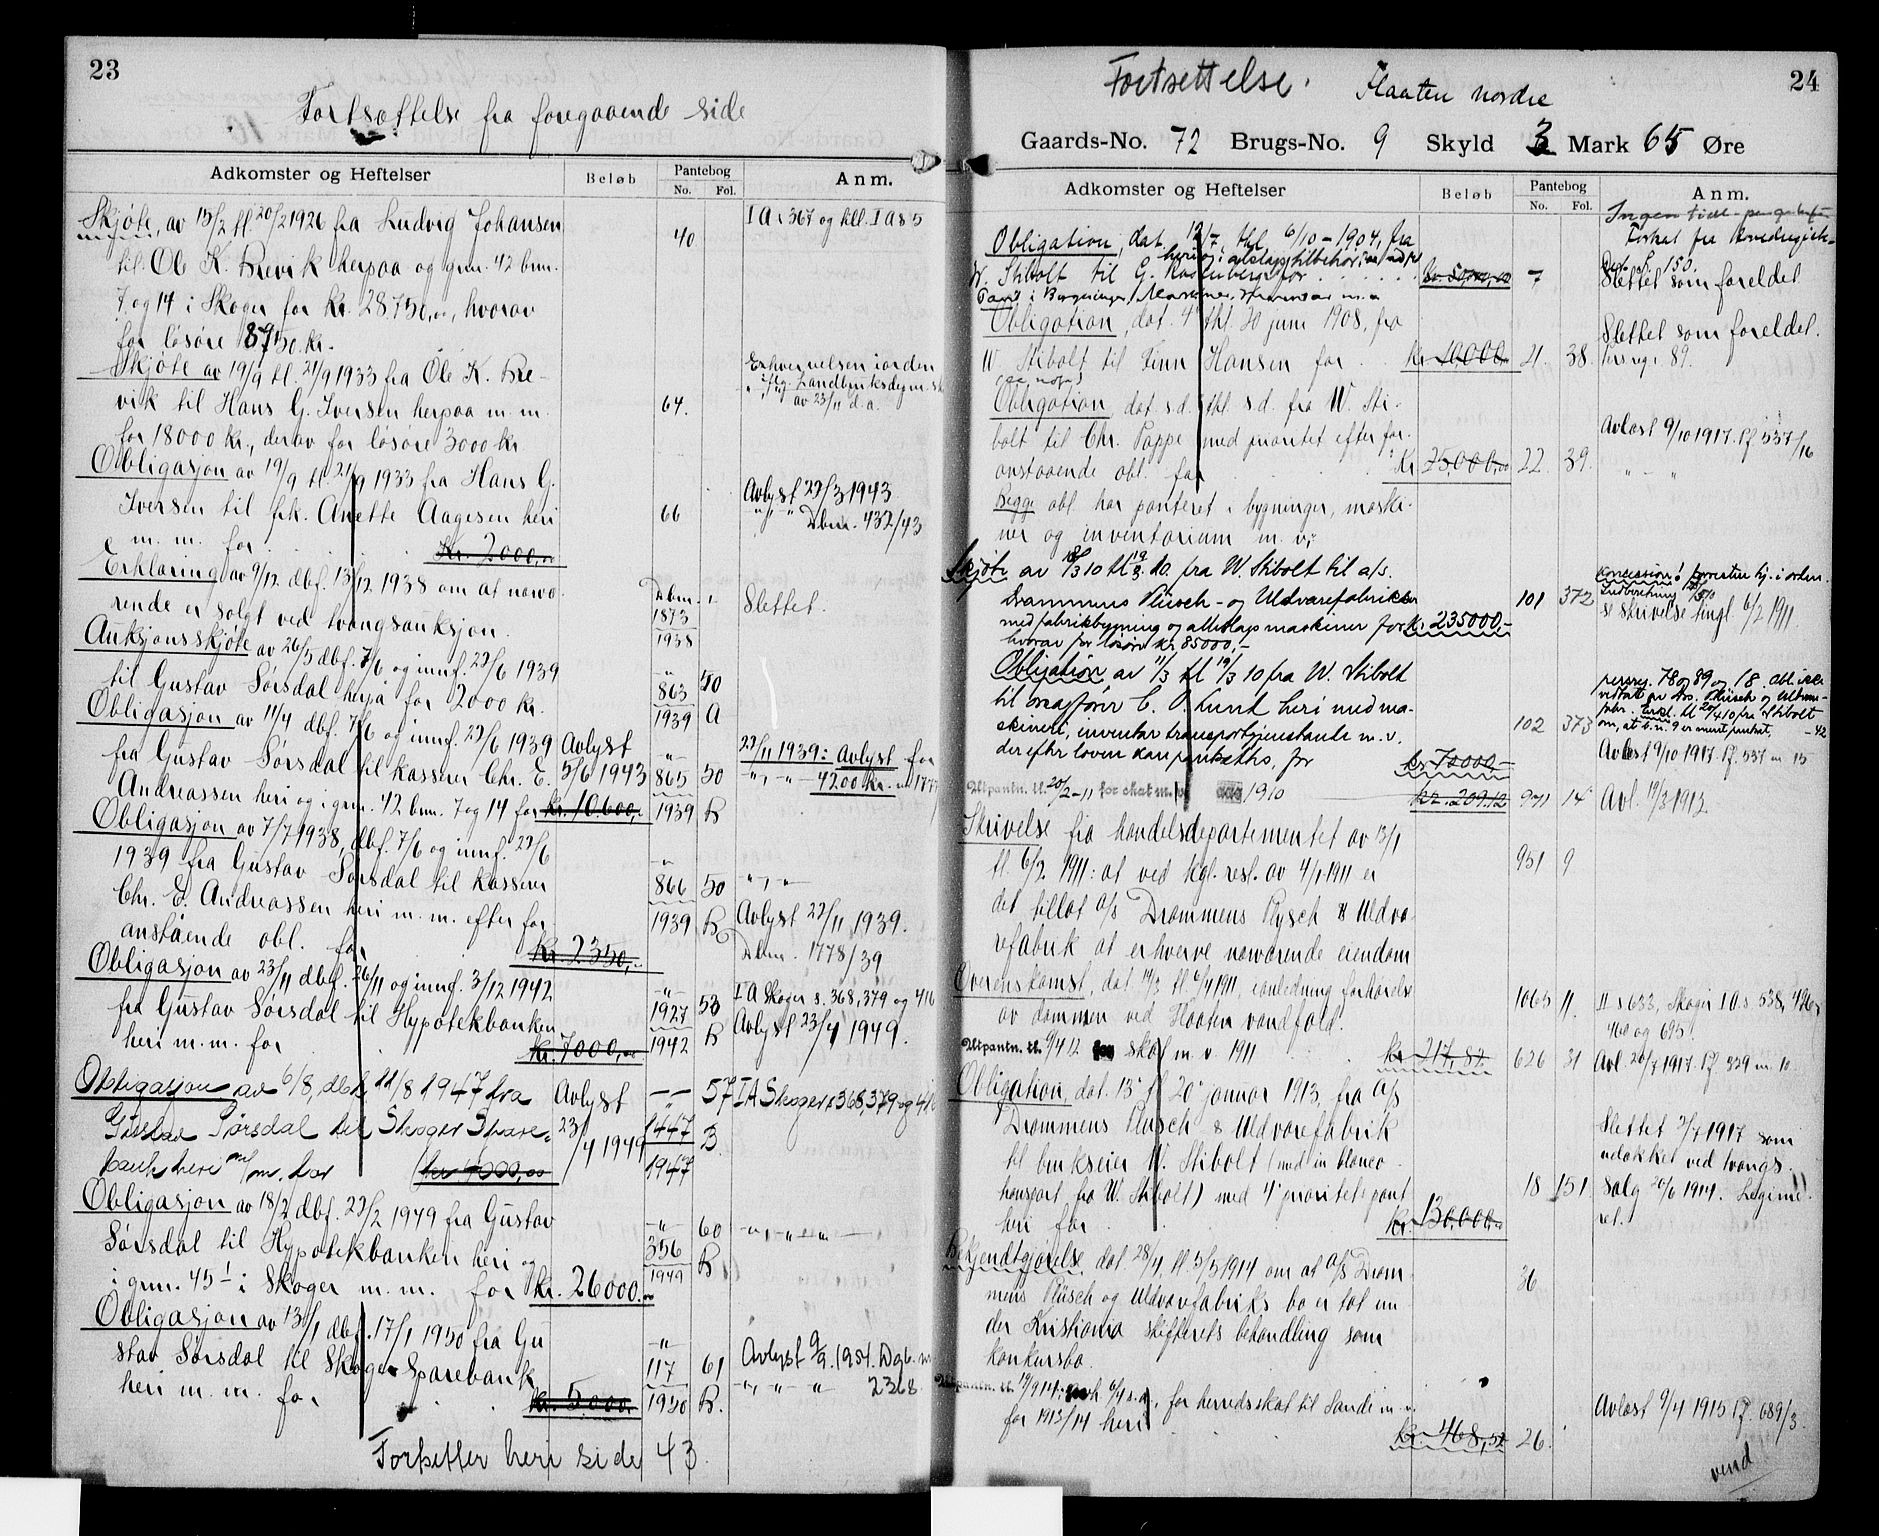 23
Fortsættelse fra foregaaende side
Adkomster og Heftelser
Beløb
Pantebog
No. Fol.
Anm.
Skjöte, av 15/2 tl. 20/2 1926 fra Ludvig Johansen 40 I A s 367 og till. I A 85
til Ole K. Brevik herpaa og gnr. 42 bnr.
7 og 14 i Skoger for kr. 28750,00, hvorav
for løsöre 8750 kr.
Skjöte av 19/9 tl. 21/9 1933 fra Ole K. Bre- Erhvervelsen i orden
vik til Hans G. Iversen herpaa m. m. 64. iflg. Landbruksdepm. sk
av 23/11 d.a.
for 18000 kr., derav for løsöre 3000 kr
Obligasjon av 19/9 tl. 21/9 1933 fra Hans G.
Iversen til frk. Anette Aagesen heri 66 Avlyst 29/3 1943
m. m. for Kr. 2000,00 Dbnr. 432/43
Erklæring av 9/12 dbf. 13/12 1938 om at nævæ- Dbnr.
rende er solgt ved tvangsauksjon. 1873 1938 Slettet.
Auksjonsskjöte av 26/5 dbf. 7/6 og innf. 29/6 1939
til Gustav Sørsdal herpå for 2000 kr. 863 50
Obligasjon av 11/4 dbf. 7/6 og innf. 29/6 1939 Avlyst 1939 A
fra Gustav Sørsdal til kasserer Chr. E. 5/6 1943 865 50 29/11 1939: Avlyst for
Andreassen heri og i gnr. 42 bnr. 7 og 14 for kr. 10.600,- 1939 B 4200 kr.
Obligasjon av 7/7 1938, dbf. 7/6 og innf. 29/6
1939 fra Gustav Sørsdal til kasserer 866 50
Chr. E. Andreassen heri m. m. efter for- 1939 B Avlyst 29/11 1939.
anstående obl. for Kr. 2350,- Dbnr. 1778/39
Obligasjon av 23/11 dbf. 26/11 og innf. 3/12 1942
fra Gustav Sørsdal til Hypotekbanken 1927 53 I A Skoger s. 368, 379 og 416
heri m. m. for Kr. 7000,00 1942 B Avlyst 23/4 1949.
Obligasjon av 6/8, dbf. 11/8 1947 fra Avlyst 57 I A Skoger s 368, 379 og 416
Gustav Sørsdal til Skoger Spare- 23/4 1949 1447 B
bank heri m/m. for kr 4000,00 1947
Obligasjon av 18/2 dbf. 22/2 1949 fra Gustav
Sørsdal til Hypotekbanken heri og 356 60
i gnr. 45/1 i Skoger m. m. for kr. 26000.00 1949 B
Obligasjon av 13/1 dbf. 17/1 1950 fra Gu
stav Sørsdal til Skoger Sparebank 117 61 Avlyst 9/9. 1954. Dgb. nr
heri m. m. for kr. 5.000.- 1950 B. 2368.
Fortsetter heri side 43.
24
Fortsettelse. Flaaten nordre
Gaards-No. 72 Brugs-No. 9 Skyld 3 Mark 65 Øre
Adkomster og Heftelser
Beløb
Pantebog
No. Fol.
Anm.
Obligation, dat. 12/7, thl. 6/10 - 1904, fra
W. Stibolt til G. 7 Slettet som foreldet
Obligation, dat. 4 thl. 20 juni 1908, fra Slettet som foreldet.
W. Stibolt til Finn Hansen for kr 10,000 21. 38.
Obligation dat. s.d. thl. s.d. fra W. Sti-
bolt til Chr. Pappe med prioritet efter for- Avlæst 9/10 1917. Pf 537/16
anstaaende obl. for Kr 25,000,00 22. 39.
Begge obl. har panteret i bygninger, maski-
ner og inventarium m. v.
Skjöte av 18/3 10 tl 19/3 10. fra W. Stibolt til a/s.
Drammens Plüsch- og Uldvarefabrikker 101 372 s. skrivelse tingl. 6/2 1911.
med fabrikbygning og alleslags maskiner for kr. 235000,-
hvorav for løsøre kr. 85000,-
Obligation av 11/3 tl 19/3 10 fra W. Stibolt
til overafförer C. O. Lund heri med ma- 102 373
skineri, inventar transportgjenstande m.v.
der efter loven kan pantsættes, for kr. 70000,- Avlæst 9/10 1917. Pf. 537 m 15
Utpantn. tl. 20/2-11 for skat m. v. 1910 kr. 209.12 971 14 Avl. 11/3 1912
Skrivelse fra handelsdepartementet av 13/1
tl. 6/2. 1911: at ved kgl. res. av 4/1 1911 er 951 9
det tillat A/s Drammens Plysch & Uldva-
refabrik at erhverve nærværende eiendom
Overenskomst, dat. 14/3 tl. 6/4 1911, i anledning forhøielse 1065 11. II s 633, Skoger I A s. 538, 426,
av dammen ved Flaaten vandfald. 460 og 695.
Utpantn. tl. 9/4 12 for skat m. v. 1911 kr 217,82 626 31 Avl. 20/7 1917. Pf 329 m. 10
Obligation, dat. 13 tl 20 januar 1913, fra A/s
Drammens Plusch & Uldvarefabrik Slettet 2/7 1917 som
til brukseier W. Stibolt (med in blanco- udækket ved tvangs-
transport fra W. Stibolt) med 4 prioritets pant 18 151 salg 20/6 1914.
heri for Kr. 130.000.00
Bekjendtgjørelse dat. 28/4, tl. 5/5 1914 om at A/s Dram-
mens Plüsch og Uldvarefabriks bo er tat un- 36
der Kristiania skifterets behandling som
konkursbo.
Utpantn. tl. 19/9 14: for herredsskat til Sande m. v. Avlæst 9/4 1915 Pf. 689/3.
for 1913/14 heri kr. 468,52 26.
vend